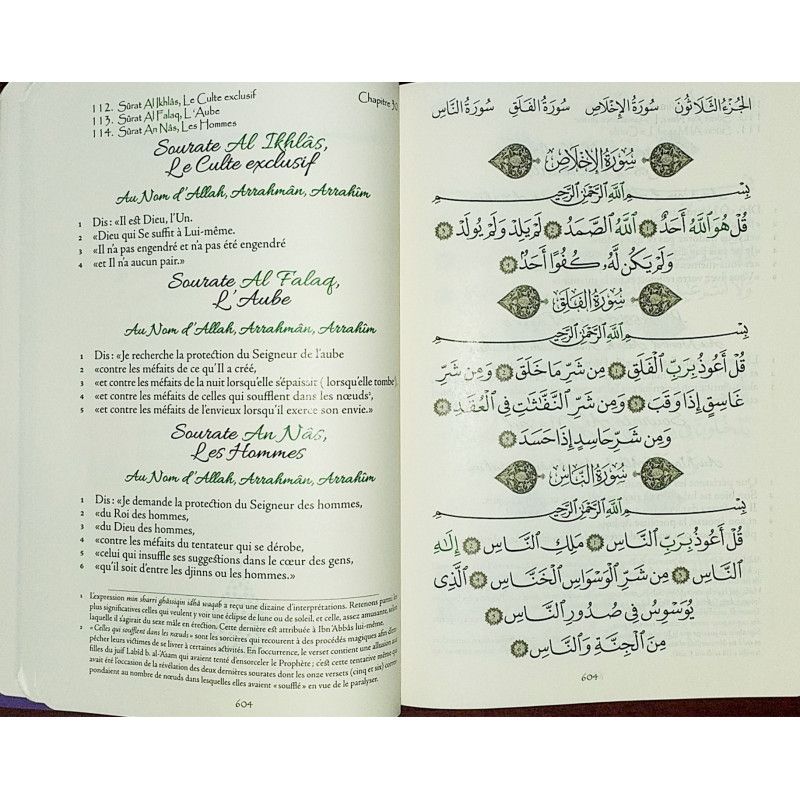 112. Sûrat Al Ikhlâs, Le Culte exclusif
Chapitre 30
113. Sûrat Al Falaq, L'Aube
114. Sûrat An Nâs, Les Hommes
Sourate Al Ikhlâs,
Le Culte exclusif
Au Nom d'Allah, Arrahmân, Arrahîm
1 Dis : «Il est Dieu, l'Un.
2 «Dieu qui Se suffit à Lui-même.
3 «Il n'a pas engendré et n'a pas été engendré
4 «et Il n'a aucun pair.»
Sourate Al Falaq,
L'Aube
Au Nom d'Allah, Arrahmân, Arrahîm
1 Dis : «Je recherche la protection du Seigneur de l'aube
2 «contre les méfaits de ce qu'Il a créé,
3 «et contre les méfaits de la nuit lorsqu'elle s'épaissit ( lorsqu'elle tombe¹).
4 «et contre les méfaits de celles qui soufflent dans les nœuds²,
5 «et contre les méfaits de l'envieux lorsqu'il exerce son envie.»
Sourate An Nâs,
Les Hommes
Au Nom d'Allah, Arrahmân, Arrahîm
1 Dis : «Je demande la protection du Seigneur des hommes,
2 «du Roi des hommes,
3 «du Dieu des hommes,
4 «contre les méfaits du tentateur qui se dérobe,
5 «celui qui insuffle ses suggestions dans le cœur des gens,
6 «qu'il soit d'entre les djinns ou les hommes.»
1 L'expression min sharri ghâssiqin idhâ waqab a reçu une dizaine d'interprétations. Retenons parmi les
plus significatives celles qui veulent y voir une éclipse de lune ou de soleil, et celle, assez amusante, selon
laquelle il s'agirait du sexe mâle en érection. Cette dernière est attribuée à Ibn 'Abbâs lui-même.
2 «Celles qui soufflent dans les nœuds» sont les sorcières qui recourent à des procédés magiques afin d'em-
pêcher leurs victimes de se livrer à certaines activités. En l'occurrence, le verset contient une allusion aux
filles du juif Labîd b. al-'Asam qui avaient tenté d'ensorceler le Prophète ; c'est cette tentative même qui
avait été l'occasion de la révélation des deux dernières sourates dont les onze versets (cinq et six) corres-
pondaient au nombre de nœuds dans lesquelles elles avaient «soufflé» en vue de le paralyser.
604
الجُزْءُ الثَّلَاثُونَ سُورَةُ الإِخْلَاصِ سُورَةُ الفَلَقِ سُورَةُ النَّاسِ
سُورَةُ الإِخْلَاصِ
بِسْمِ ٱللَّهِ ٱلرَّحْمَٰنِ ٱلرَّحِيمِ
قُلْ هُوَ ٱللَّهُ أَحَدٌ ١ ٱللَّهُ ٱلصَّمَدُ ٢ لَمْ يَلِدْ وَلَمْ يُولَدْ ٣
وَلَمْ يَكُن لَّهُۥ كُفُوًا أَحَدٌۢ ٤
سُورَةُ الفَلَقِ
بِسْمِ ٱللَّهِ ٱلرَّحْمَٰنِ ٱلرَّحِيمِ
قُلْ أَعُوذُ بِرَبِّ ٱلْفَلَقِ ١ مِن شَرِّ مَا خَلَقَ ٢ وَمِن شَرِّ
غَاسِقٍ إِذَا وَقَبَ ٣ وَمِن شَرِّ ٱلنَّفَّٰثَٰتِ فِى ٱلْعُقَدِ ٤
وَمِن شَرِّ حَاسِدٍ إِذَا حَسَدَ ٥
سُورَةُ النَّاسِ
بِسْمِ ٱللَّهِ ٱلرَّحْمَٰنِ ٱلرَّحِيمِ
قُلْ أَعُوذُ بِرَبِّ ٱلنَّاسِ ١ مَلِكِ ٱلنَّاسِ ٢ إِلَٰهِ
ٱلنَّاسِ ٣ مِن شَرِّ ٱلْوَسْوَاسِ ٱلْخَنَّاسِ ٤ ٱلَّذِى
يُوَسْوِسُ فِى صُدُورِ ٱلنَّاسِ ٥
مِنَ ٱلْجِنَّةِ وَٱلنَّاسِ ٦
604